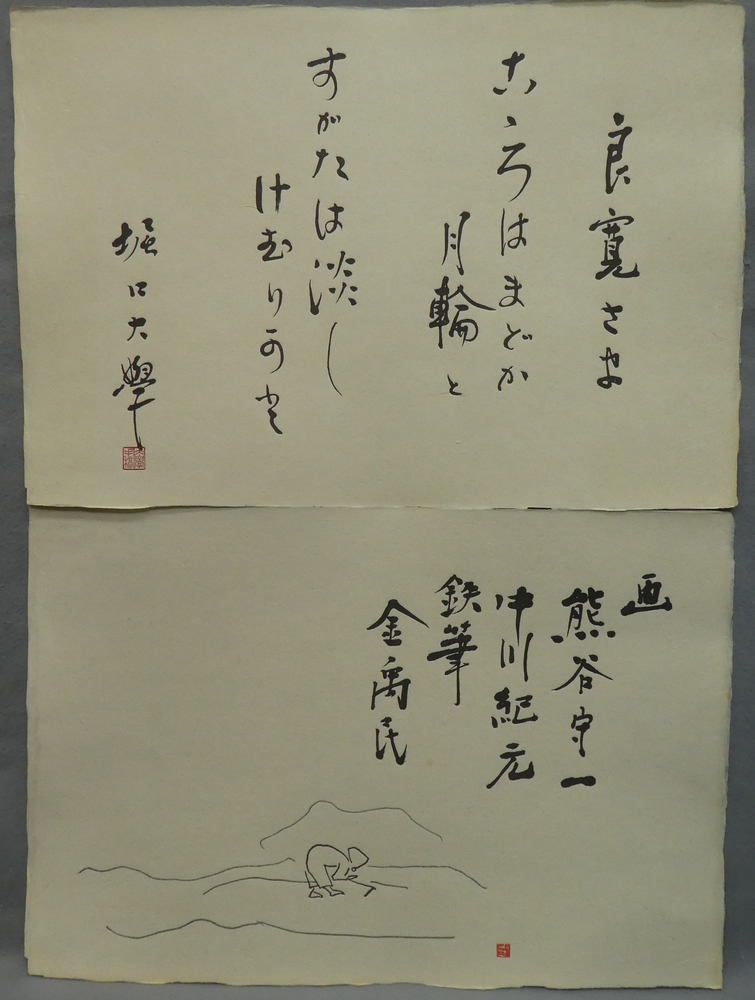 良寛さま
こゝろはまどか
月輪と
すがたは淡し
けむり可と
堀口大學
画
熊谷守一
中川紀元
鉄筆
金禹民